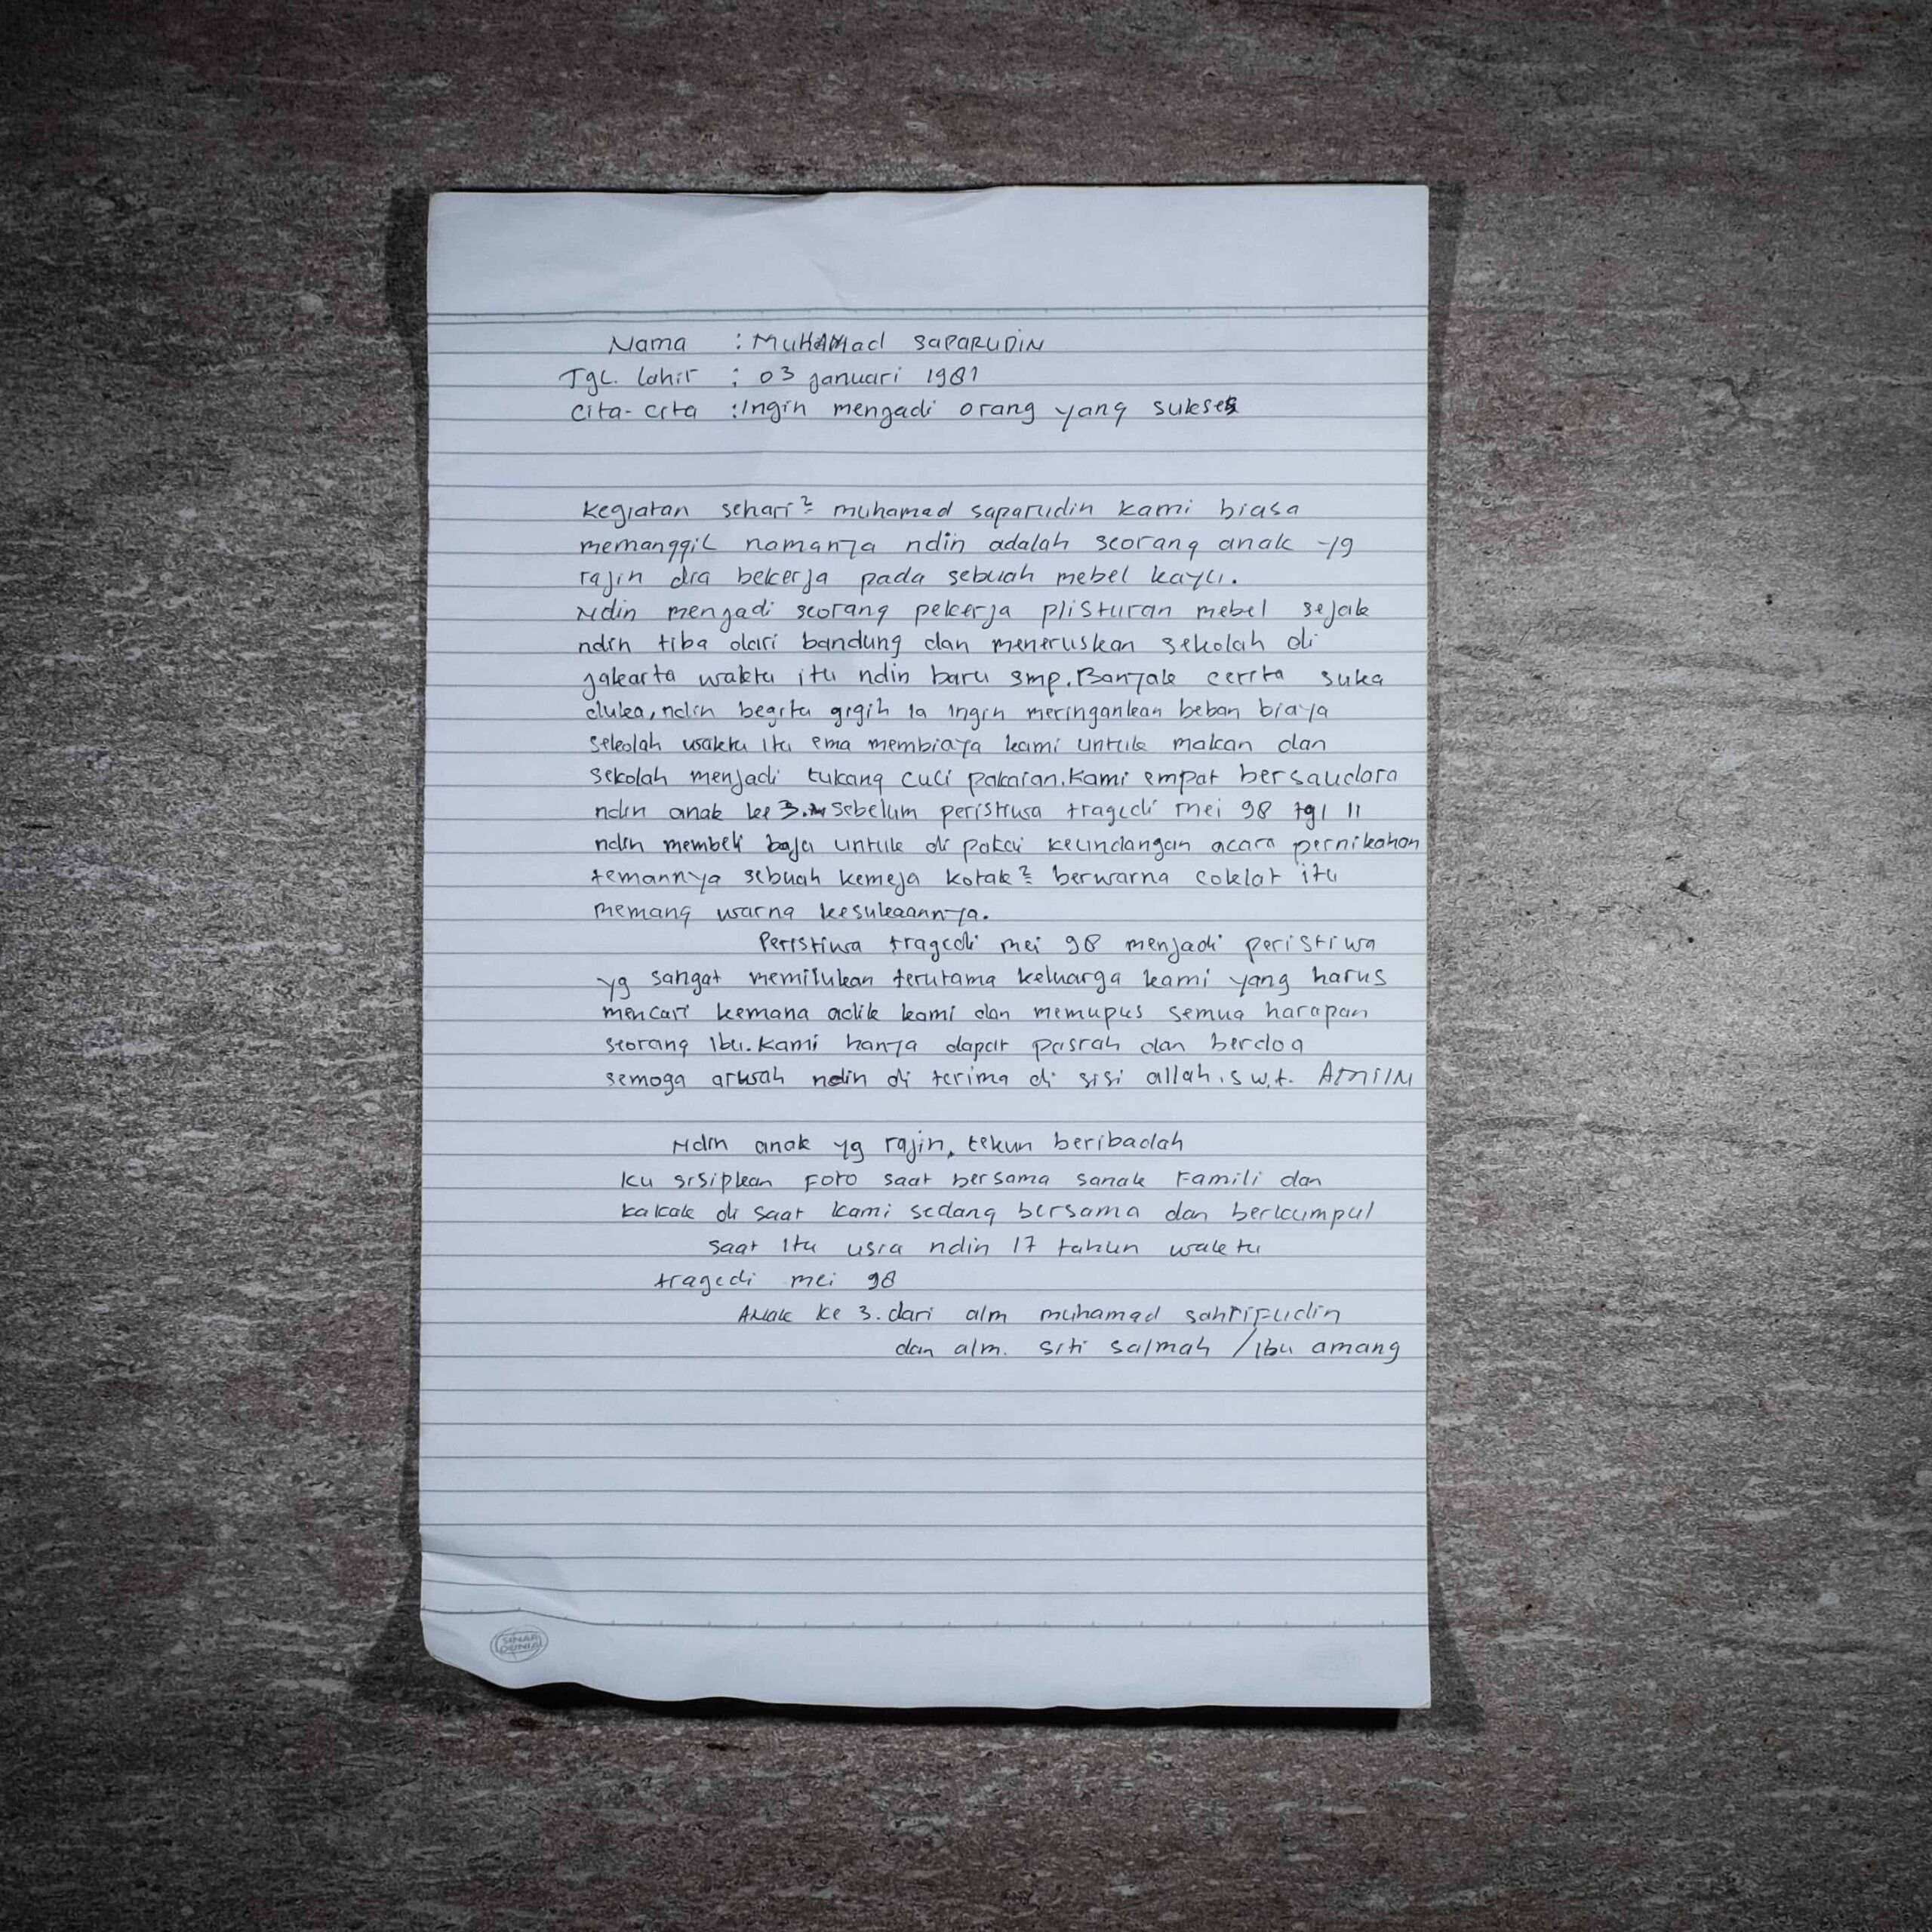 Nama : MuHAMad SAPARUDIN
Tgl. lahir : 03 januari 1981
Cita-cita : Ingin mengadi orang yang sukses
kegiatan sehari² muhamad saparudin kami biasa
memanggil namanya ndin adalah seorang anak yg
rajin dia bekerja pada sebuah mebel kayu.
Ndin mengadi seorang pekerja plisturan mebel sejak
ndin tiba dari bandung dan meneruskan sekolah di
jakarta waktu itu ndin baru smp. Banyak cerita suka
duka, ndin begitu gigih ia ingin meringankan beban biaya
sekolah waktu itu ema membiaya kami untuk makan dan
sekolah menjadi tukang cuci pakaian. Kami empat bersaudara
ndin anak ke 3. sebelum peristiwa tragedi mei 98 tgl 11
ndin membeli baju untuk di pakai keundangan acara pernikahan
temannya sebuah kemeja kotak² berwarna coklat itu
memang warna kesukaannya.
Peristiwa tragedi mei 98 menjadi peristiwa
yg sangat memilukan terutama keluarga kami yang harus
mencari kemana adik kami dan memupus semua harapan
seorang ibu. Kami hanya dapat pasrah dan berdoa
semoga arwah ndin di terima di sisi allah.s w.t. AMIIN
Ndin anak yg rajin, tekun beribadah
ku sisipkan Foto saat bersama sanak Famili dan
kakak di saat kami sedang bersama dan berkumpul
saat itu usia ndin 17 tahun waktu
tragedi mei 98
Anak ke 3. dari alm muhamad sahrifudin
dan alm. siti salmah / ibu amang
SINAR
DUNIA